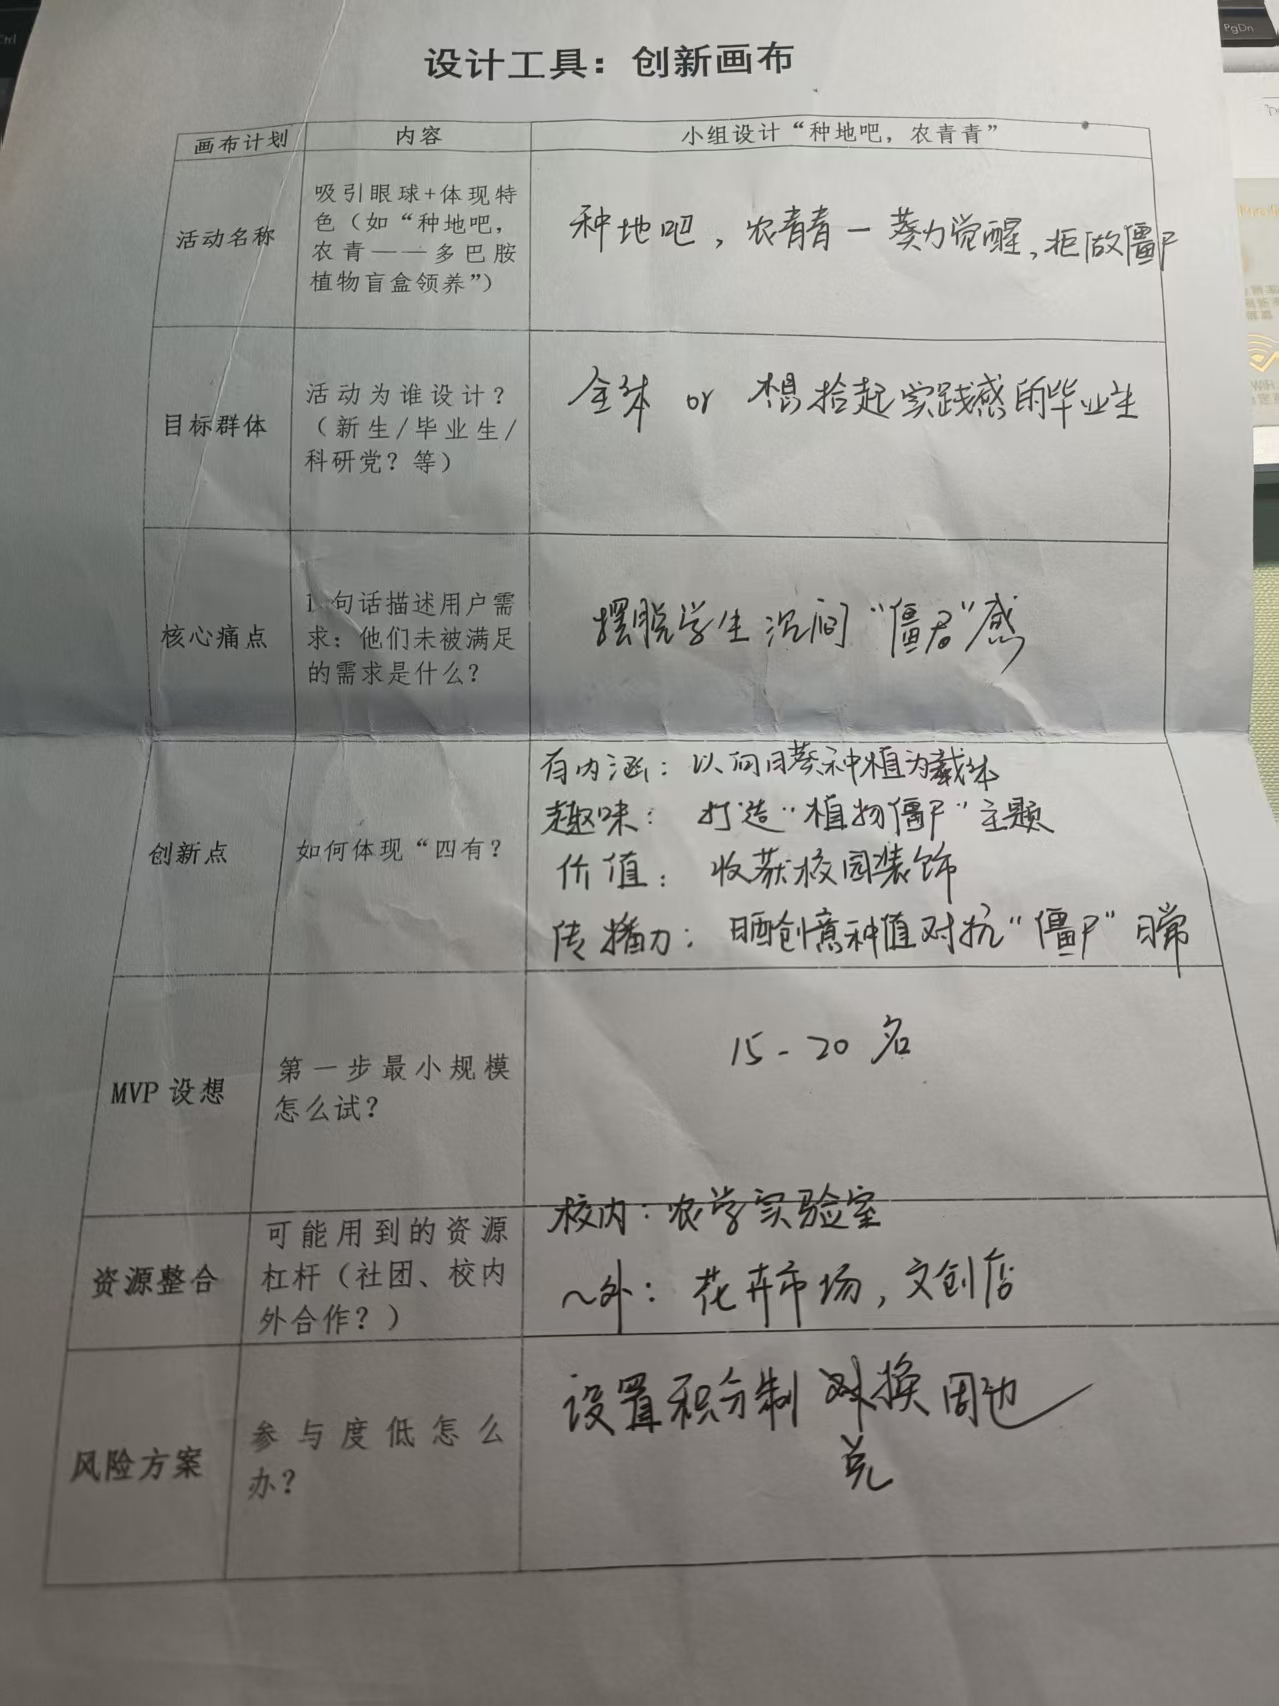 Ctrl
PgDn
设计工具：创新画布
画布计划
内容
小组设计“种地吧，农青青”
活动名称
吸引眼球+体现特
色（如“种地吧，
农青——多巴胺
植物盲盒领养”）
种地吧，农青青－葵力觉醒，拒做僵尸
目标群体
活动为谁设计？
（新生/毕业生/
科研党？等）
全体 or 想拾起实践感的毕业生
核心痛点
1 句话描述用户需
求：他们未被满足
的需求是什么？
摆脱学生沉闷“僵尸”感
创新点
如何体现“四有？
有内涵：以向日葵种植为载体
趣味：打造“植物僵尸”主题
价值：收获校园装饰
传播力：晒创意种值对抗“僵尸”日常
MVP 设想
第一步最小规模
怎么试？
15-20 名
资源整合
可能用到的资源
杠杆（社团、校内
外合作？）
校内：农学实验室
～外：花卉市场，文创店
风险方案
参与度低怎么
办？
设置积分制 换周边
兑